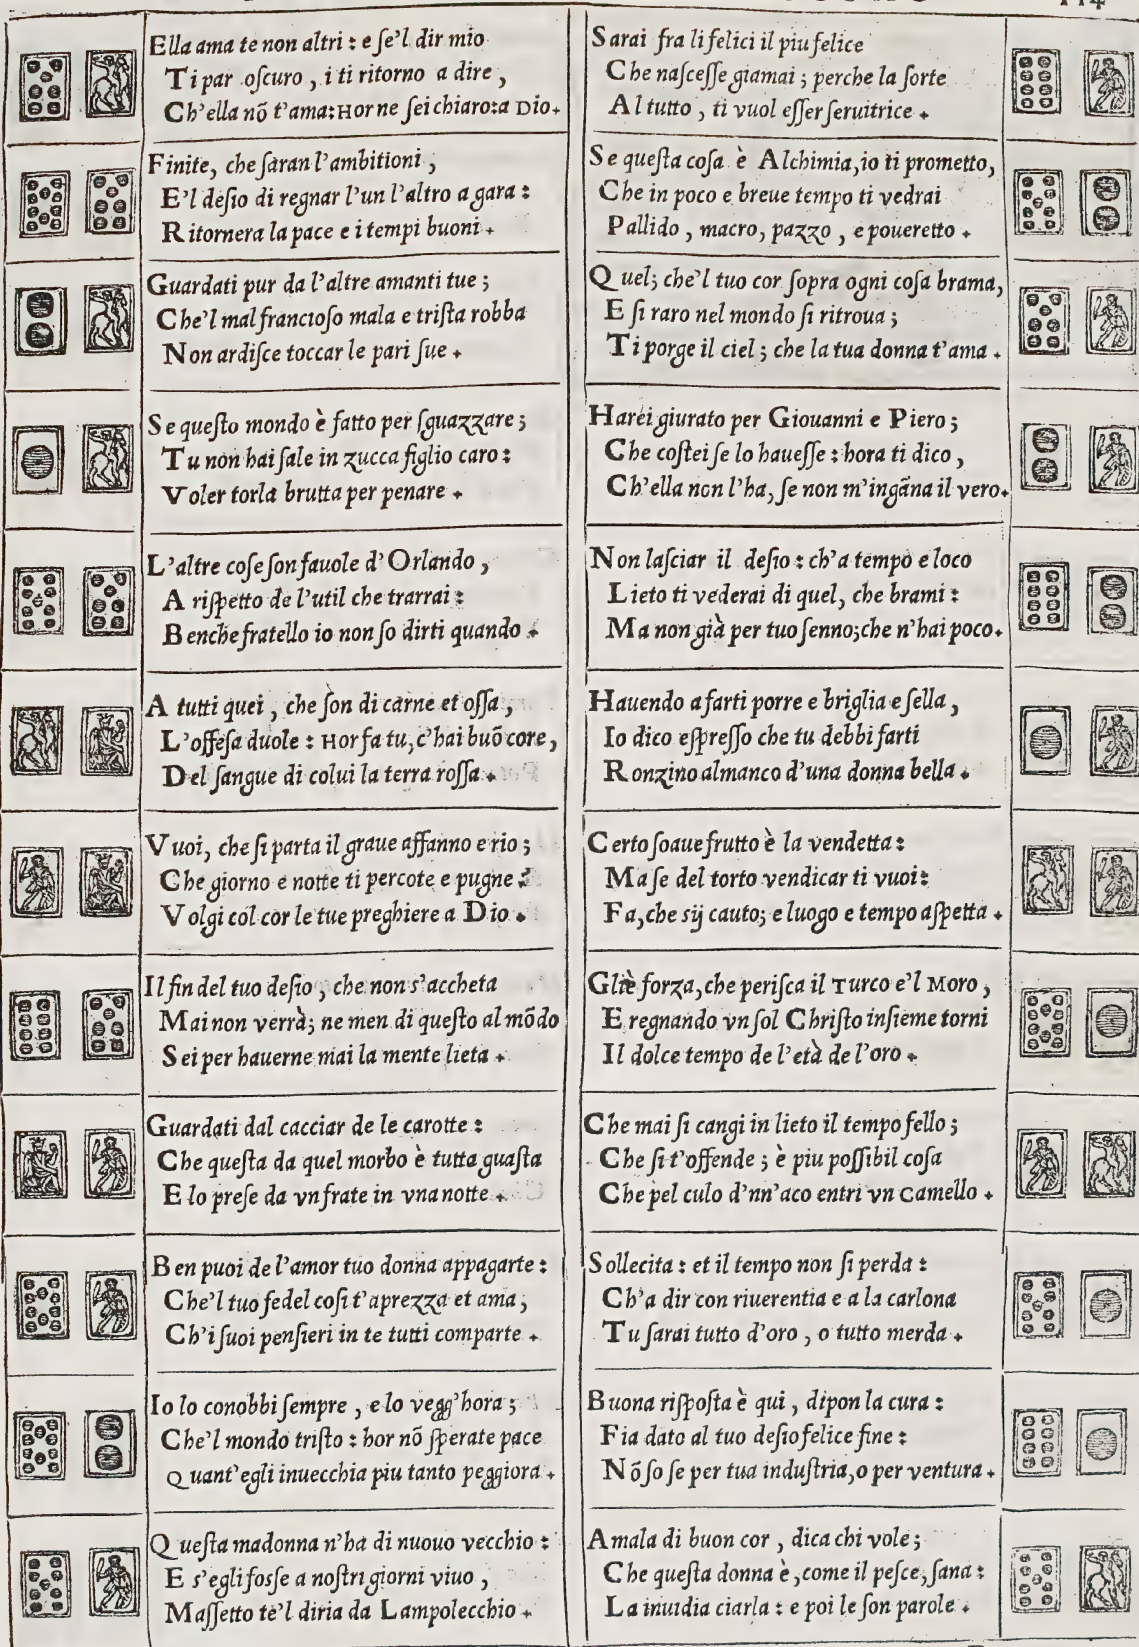 114
Ella ama te non altri : e ſe'l dir mio
Ti par oſcuro , i ti ritorno a dire ,
Ch'ella nõ t'ama: Hor ne ſei chiaro: a Dio.
Finite, che ſaran l'ambitioni ,
E'l deſio di regnar l'un l'altro a gara :
Ritornera la pace e i tempi buoni .
Guardati pur da l'altre amanti tue ;
Che'l mal francioſo mala e triſta robba
Non ardiſce toccar le pari ſue .
Se queſto mondo è fatto per ſguazzare ;
Tu non hai ſale in zucca figlio caro :
Voler torla brutta per penare .
L'altre coſe ſon fauole d'Orlando ,
A riſpetto de l'util che trarrai :
Benche fratello io non ſo dirti quando .
A tutti quei , che ſon di carne et oſſa ,
L'offeſa duole : Hor fa tu, c'hai buõ core,
Del ſangue di colui la terra roſſa .
Vuoi, che ſi parta il graue affanno e rio ;
Che giorno e notte ti percote e pugne :
Volgi col cor le tue preghiere a Dio .
Il fin del tuo deſio , che non s'accheta
Mai non verrà; ne men di queſto al mõdo
Sei per hauerne mai la mente lieta .
Guardati dal cacciar de le carotte :
Che queſta da quel morbo è tutta guaſta
E lo preſe da vn frate in vna notte .
Ben puoi de l'amor tuo donna appagarte :
Che'l tuo fedel coſi t'aprezza et ama ,
Ch'i ſuoi penſieri in te tutti comparte .
Io lo conobbi ſempre , e lo vegg'hora ;
Che'l mondo triſto : hor nõ ſperate pace
Quant'egli inuecchia piu tanto peggiora .
Queſta madonna n'ha di nuouo vecchio :
E s'egli foſſe a noſtri giorni viuo ,
Maſſetto te'l diria da Lampolecchio .
Sarai fra li felici il piu felice
Che naſceſſe giamai ; perche la ſorte
Al tutto , ti vuol eſſer ſeruitrice .
Se queſta coſa è Alchimia, io ti prometto,
Che in poco e breue tempo ti vedrai
Pallido , macro, pazzo , e poueretto .
Quel; che'l tuo cor ſopra ogni coſa brama,
E ſi raro nel mondo ſi ritroua ;
Ti porge il ciel ; che la tua donna t'ama .
Harei giurato per Giouanni e Piero ;
Che coſtei ſe lo haueſſe : hora ti dico ,
Ch'ella non l'ha, ſe non m'ingãna il vero.
Non laſciar il deſio : ch'a tempo e loco
Lieto ti vederai di quel, che brami :
Ma non già per tuo ſenno; che n'hai poco.
Hauendo a farti porre e briglia e ſella ,
Io dico eſpreſſo che tu debbi farti
Ronzino almanco d'una donna bella .
Certo ſoaue frutto è la vendetta :
Ma ſe del torto vendicar ti vuoi :
Fa, che sij cauto; e luogo e tempo aſpetta .
Gliè forza, che periſca il Turco e'l Moro ,
E regnando vn ſol Chriſto inſieme torni
Il dolce tempo de l'età de l'oro .
Che mai ſi cangi in lieto il tempo fello ;
Che ſi t'offende ; è piu poſſibil coſa
Che pel culo d'nn'aco entri vn Camello .
Sollecita : et il tempo non ſi perda :
Ch'a dir con riuerentia e a la carlona
Tu ſarai tutto d'oro , o tutto merda .
Buona riſpoſta è qui , dipon la cura :
Fia dato al tuo deſio felice fine :
Nõ ſo ſe per tua induſtria, o per ventura .
Amala di buon cor , dica chi vole ;
Che queſta donna è, come il peſce, ſana :
La inuidia ciarla : e poi le ſon parole .